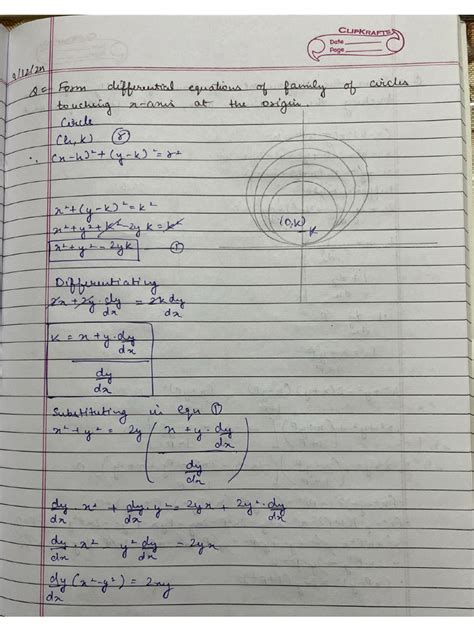 CLIPKRAFTS
Date
Page
9/12/24
Q= Form differential equations of family of circles
touching x-axis at the origin.
Circle
(h,k) (r)
∴ (x-h)²+(y-k)²=r²
x²+(y-k)²=k²
x²+y²+k²-2yk=k²
x²+y²=2yk ①
(0,k)
k
Differentiating
2x+2y.dy/dx = 2k dy/dx
k = (x+y.dy/dx)/(dy/dx)
Substituting in eqn ①
x²+y² = 2y ((x+y.dy/dx)/(dy/dx))
dy/dx . x² + dy/dx . y² = 2yx + 2y².dy/dx
dy/dx . x² - y² dy/dx = 2yx
dy/dx (x²-y²) = 2xy